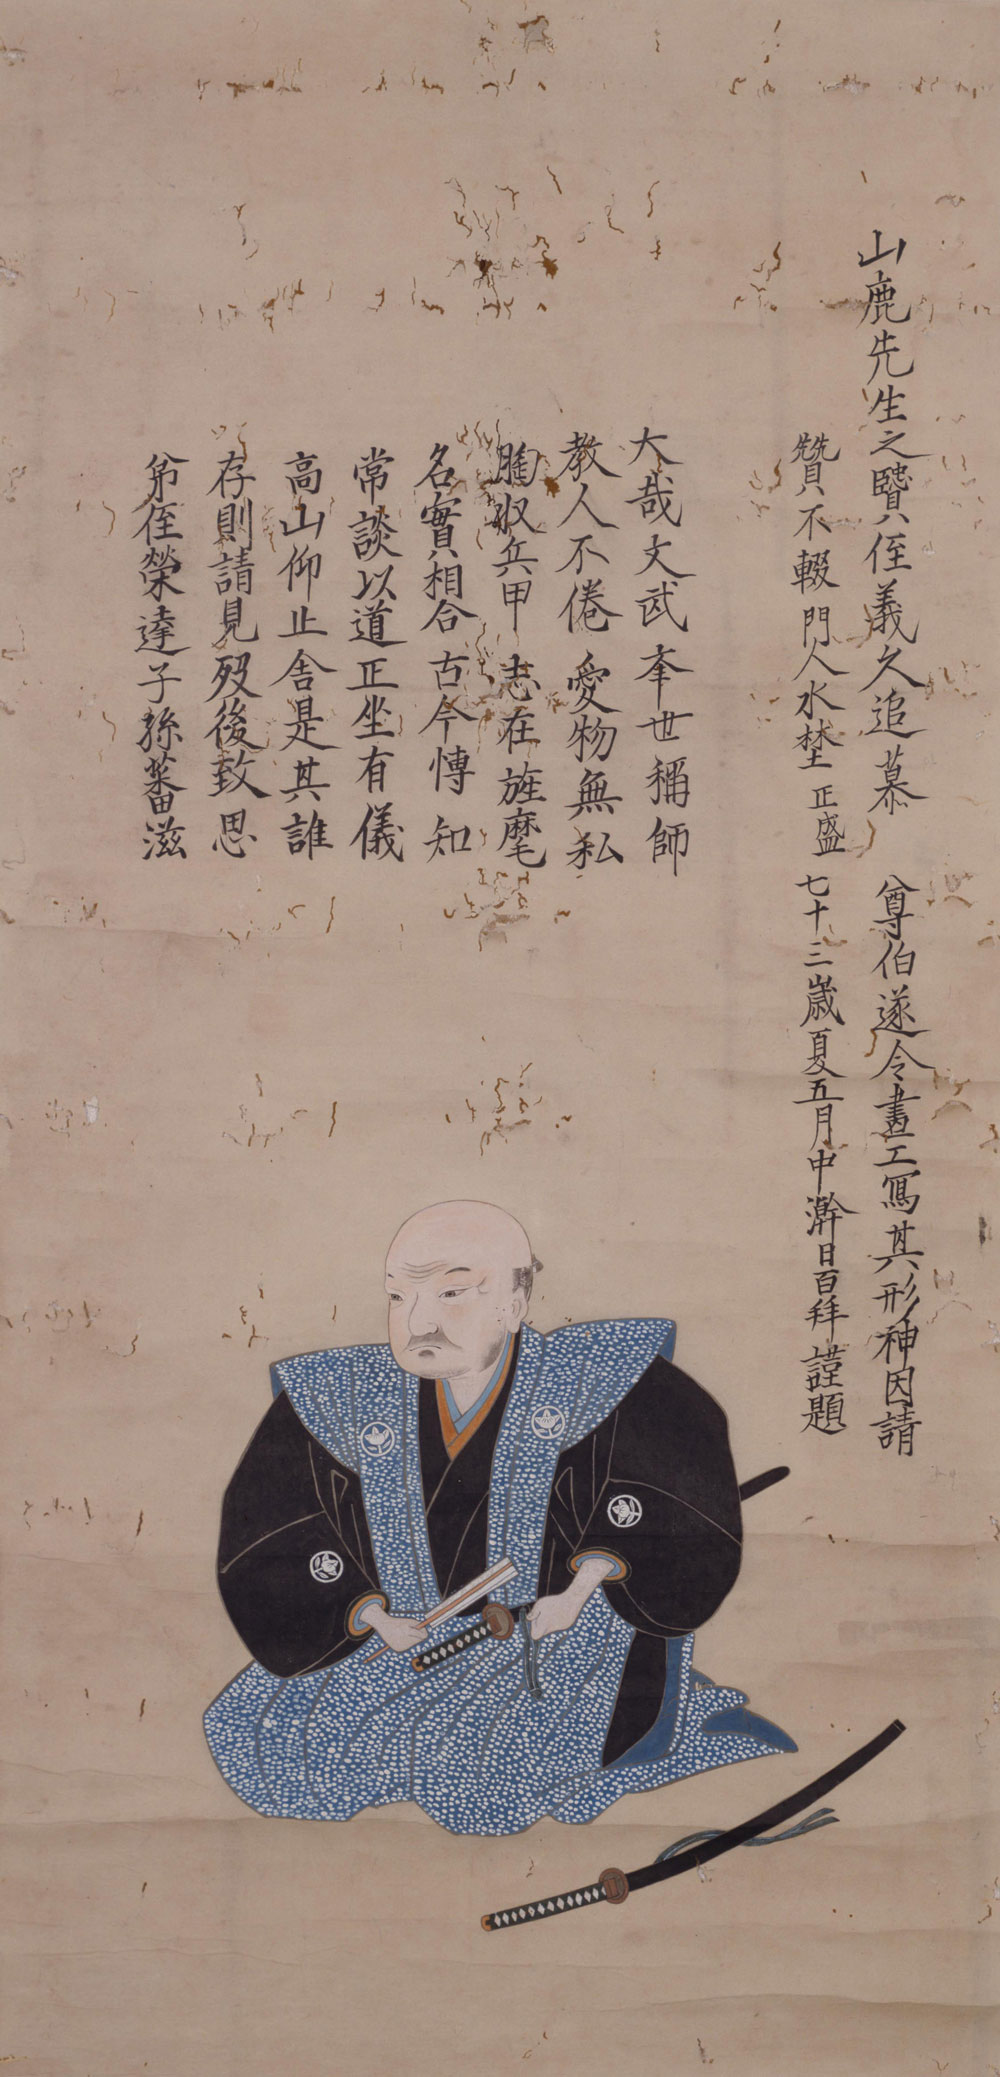 山鹿先生之賢姪義久追慕　尊伯遂令畫工寫其形神因請
贊不輟門人水埜正盛七十三歳夏五月中澣日百拜謹題
大哉文武 世稱師
教人不倦愛物無私
胸収兵甲志在旌麾
名實相合古今博知
常談以道正坐有儀
高山仰止舎是其誰
存則請見歿後致思
弟侄榮達子孫蕃滋